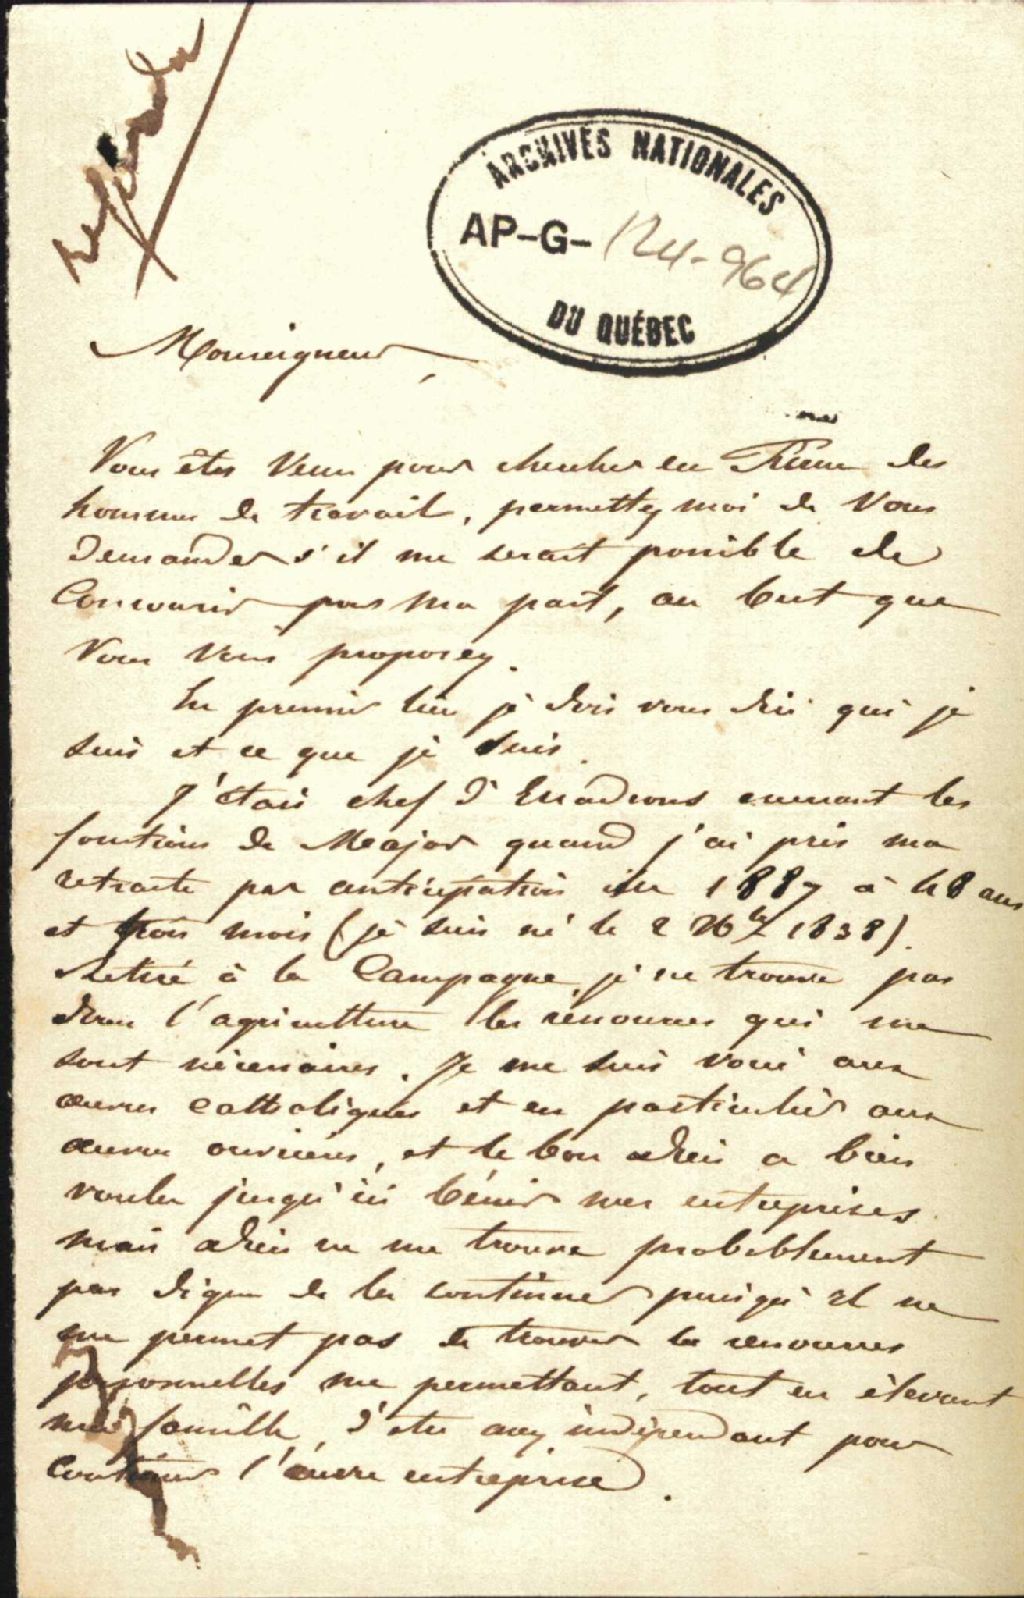 répondu
ARCHIVES NATIONALES
AP-G- 124-964
DU QUÉBEC
Monseigneur,
Vous êtes venu pour chercher en France des
hommes de travail, permettez moi de vous
demander s'il me serait possible de
Concourir pour ma part, au but que
Vous Vous proposez.
En premier lieu je dois vous dire qui je
suis et ce que je suis.
J'étais chef d'Escadrons exerçant les
fonctions de Major quand j'ai pris ma
retraite par anticipation en 1887 à 48 ans
et trois mois (je suis né le 2 Xbre 1838).
Retiré à la Campagne, je ne trouve pas
dans l'agriculture les ressources qui me
sont nécessaires. Je me suis voué aux
œuvres catholiques et en particulier aux
œuvres ouvrières, et le bon Dieu a bien
voulu jusqu'ici bénir mes entreprises
mais Dieu ne me trouve probablement
pas digne de les continuer puisqu'il ne
me permet pas de trouver les ressources
personnelles me permettant, tout en élevant
ma famille, d'être assez indépendant pour
continuer l'œuvre entreprise.